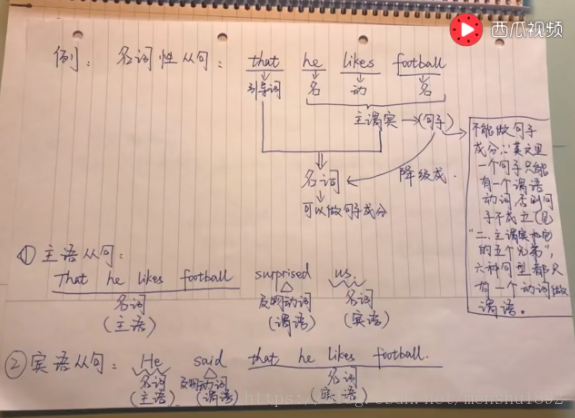 西瓜视频
例：名词性从句：that he likes football
引导词 名 动 名
主谓宾→(句子)
名词
降级成.
可以做句子成分
不能做句子
成分∵英文里
一个句子只能
有一个谓语
动词否则句
子不成立(见
"二、主谓宾和它
的五个兄弟",
六种句型都只
有一个动词做
谓语。
① 主语从句：
That he likes football surprised us.
名词 及物动词 名词
(主语) (谓语) (宾语)
② 宾语从句：He said that he likes football.
名词 及物动词 名词
主语 谓语 宾语